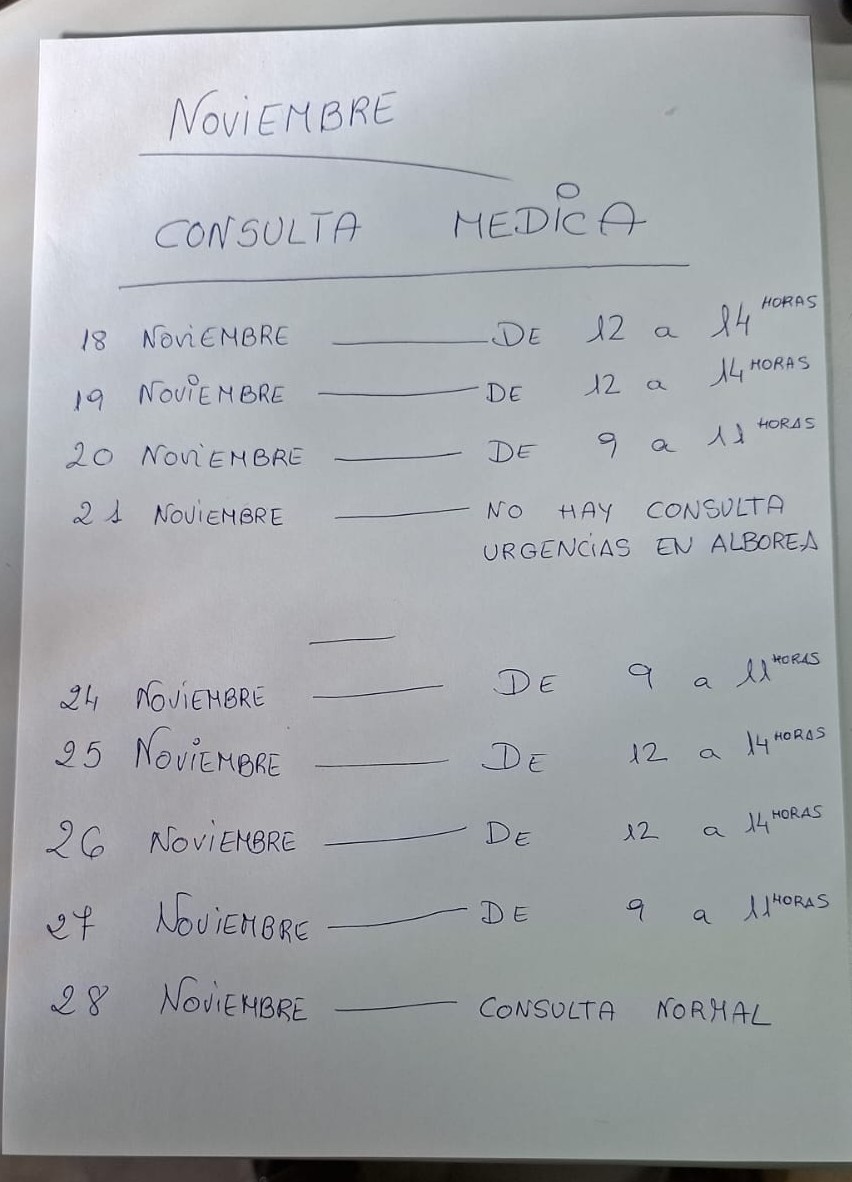 NOVIEMBRE
CONSULTA MEDICA
18 NOVIEMBRE — DE 12 a 14 HORAS
19 NOVIEMBRE — DE 12 a 14 HORAS
20 NOVIEMBRE — DE 9 a 11 HORAS
21 NOVIEMBRE — NO HAY CONSULTA
URGENCIAS EN ALBOREA
—
24 NOVIEMBRE — DE 9 a 11 HORAS
25 NOVIEMBRE — DE 12 a 14 HORAS
26 NOVIEMBRE — DE 12 a 14 HORAS
27 NOVIEMBRE — DE 9 a 11 HORAS
28 NOVIEMBRE — CONSULTA NORMAL